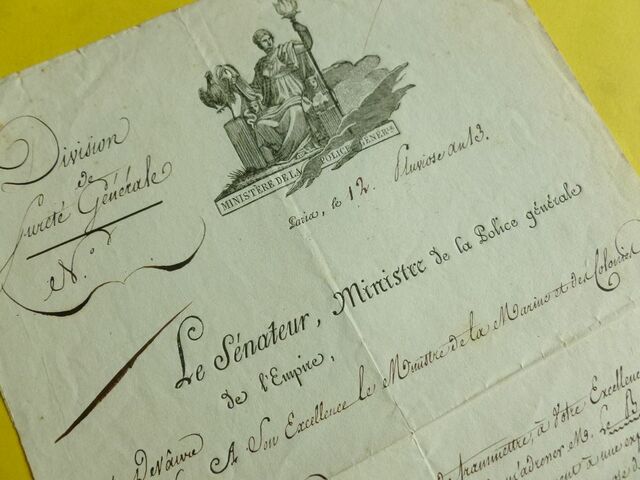 Division
de
Sureté Générale
N.°
MINISTÈRE DE LA POLICE GÉNÉR.le
Paris, le 12 Pluviose an 13.
Le Sénateur, Ministre de la Police générale
de l'Empire,
A Son Excellence le Ministre de la Marine et des Colonies
transmettre, à Votre Excellence
M. Le
à une